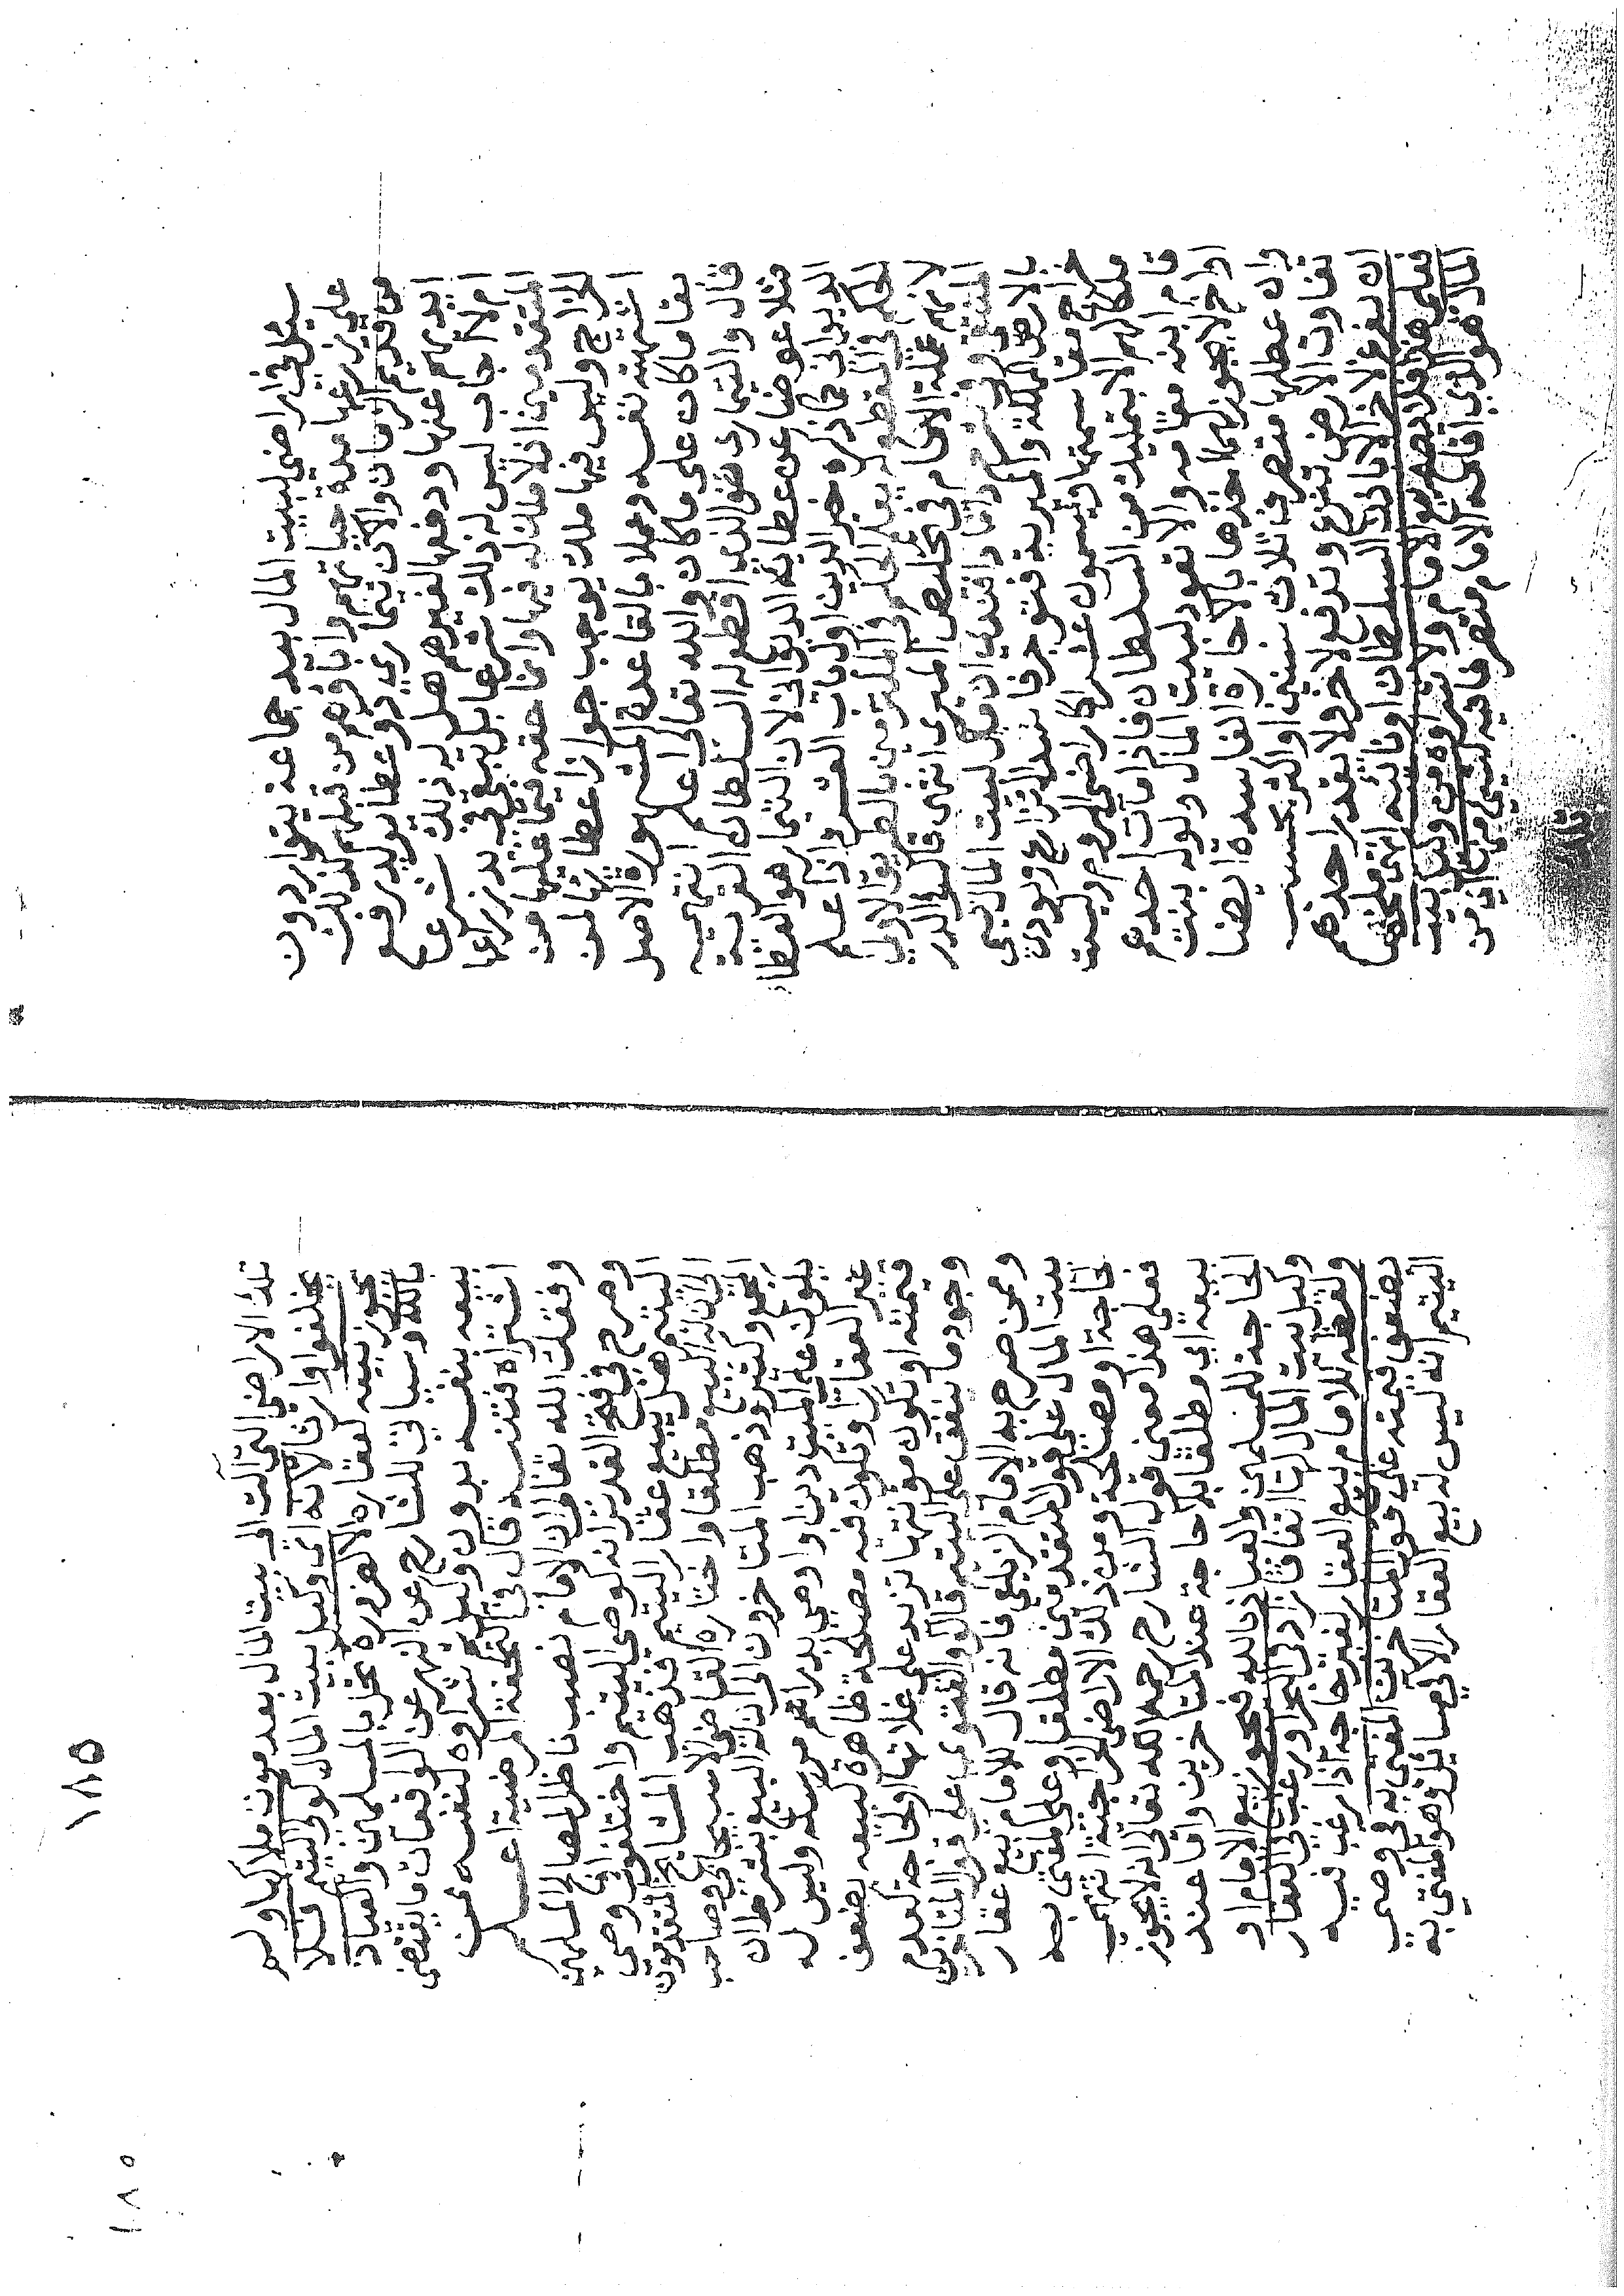 سئل في اراضي لبيت المال بيد جماعة يتواردون
على زرعها مدة حياتهم واباؤهم من قبلهم كذلك
من قديم الزمان والان تيماري ذو عطا يريد رفع
ايديهم عنها ودفعها لغيرهم هل له ذلك شرعا
ام لا اجاب ليس له ذلك شرعا بل تبقى بيد زراعها
المتقدمين اذ لا ملك له فيها وانما حقه فيما عليها من
الخراج وليس فيها ملك يوجب جواز اعطائها لمن
اشتهته نفسه وعملا بالقاعدة المشهورة الاصل
بقا ما كان على ما كان والله تعالى اعلم انتهى
قال والتيماري هو الذي اقطع له السلطان القرية
مثلا عوضا عن عطائه الديواني لان التيمار هو العطا
الديواني كما ذكره خير الدين اول باب العشر واذا علم
الحكم في المقطع له يعلم الحكم في الملتزمين بالطريق الاولى
لانهم عملة الامام في تخليص الميري انتهى قال في الدر
المنتقى في شرح ان ما لبيت المال تسمى
بالارض المملكة والميرية فتوجر فاسدا لتزارع ويودون
خراج مقاسمتها ويسمون عشرا كاراضي الروم وليست
ملكا لهم الا بتمليك من السلطان فاذا مات احدهم
قام ابنه مقامه والا تعود لبيت المال ولو له بنت
او اخ لا يجوز لهما اخذها بالاجارة الفاسدة ايضا
وان عطلها متصرف ثلاث سنين او اكثر بحسب
تفاوت الارض تنزع وتدفع لاخر ولا يقدر احدهم
ان يفرغ لاخر الا باذن السلطان او نائبه انتهى ملخصا
فعلى هذا فلا يصح بيع الامام ولا شراوه من وكيل بيت
المال هو الذي اقامه الامام متصرفا فيه لشي منها من
تلك الاراضي التي آلت الى بيت المال بعد موت ملاكها ولم
يخلفوا وارثا لانه اي وكيل بيت المال كولي اليتيم فلا
يجوز بيعه لعقاره الا لضرورة تحل بالمسلمين والعياذ
بالله وسياتي للشارح عن النهر عن الواقعات ما يقتضي
بيعه بنفسه بدون وكيل ثم شراوه لنفسه ممن
اشتراه فتنبه قال في التحفة المرضية اعلم
وفقك الله تعالى ان الامام نصب ناظر لمصالح المسلمين
وصرح في فتح القدير انه كوصي اليتيم واختلفوا في وصي
اليتيم هل يبيع عقار اليتيم فذهب المشايخ المتقدمون
الى ان له البيع مطلقا واختاره القاضي الاسبيجابي وصاحب
المجمع وكثير وذهب المتاخرون الى ان له البيع بشرط ان
يكون على الميت دين او وصى بدراهم مرسلة وليس له
غير العقار او تكون فيه مصلحة ظاهرة كبيعه بضعف
قيمته او تكون مونتها تزيد على غلاتها او لحاجة كعدم
وجود ما ينفق على اليتيم قال والفتوى على قول المتاخرين
وممن صرح به الامام الزيلعي فانه قال للامام بيع عقار
بيت المال على قول المتقدمين مطلقا وعلى المفتى به
لحاجة او مصلحة ومن ذلك الاراضي الخراجية انتهى
فعلى هذا معنى قول الشارح رحمه الله تعالى انه لا يجوز
بيعه اي مطلقا بلا حاجة عند المتاخرين واما عند
الحاجة للمسلمين والعياذ بالله فيجوز بيع الامام او
وكيل بيت المال لها اتفاقا زاد في البحر او رغب في العقار
ولفظه للامام بيع العقار لغير حاجة اذا رغب فيه
بضعف قيمته على قول المتاخرين المفتى به في وصي
اليتيم انه ليس له بيع العقار الا في مسايل وهو المفتى به
١٨٥
١٨٥